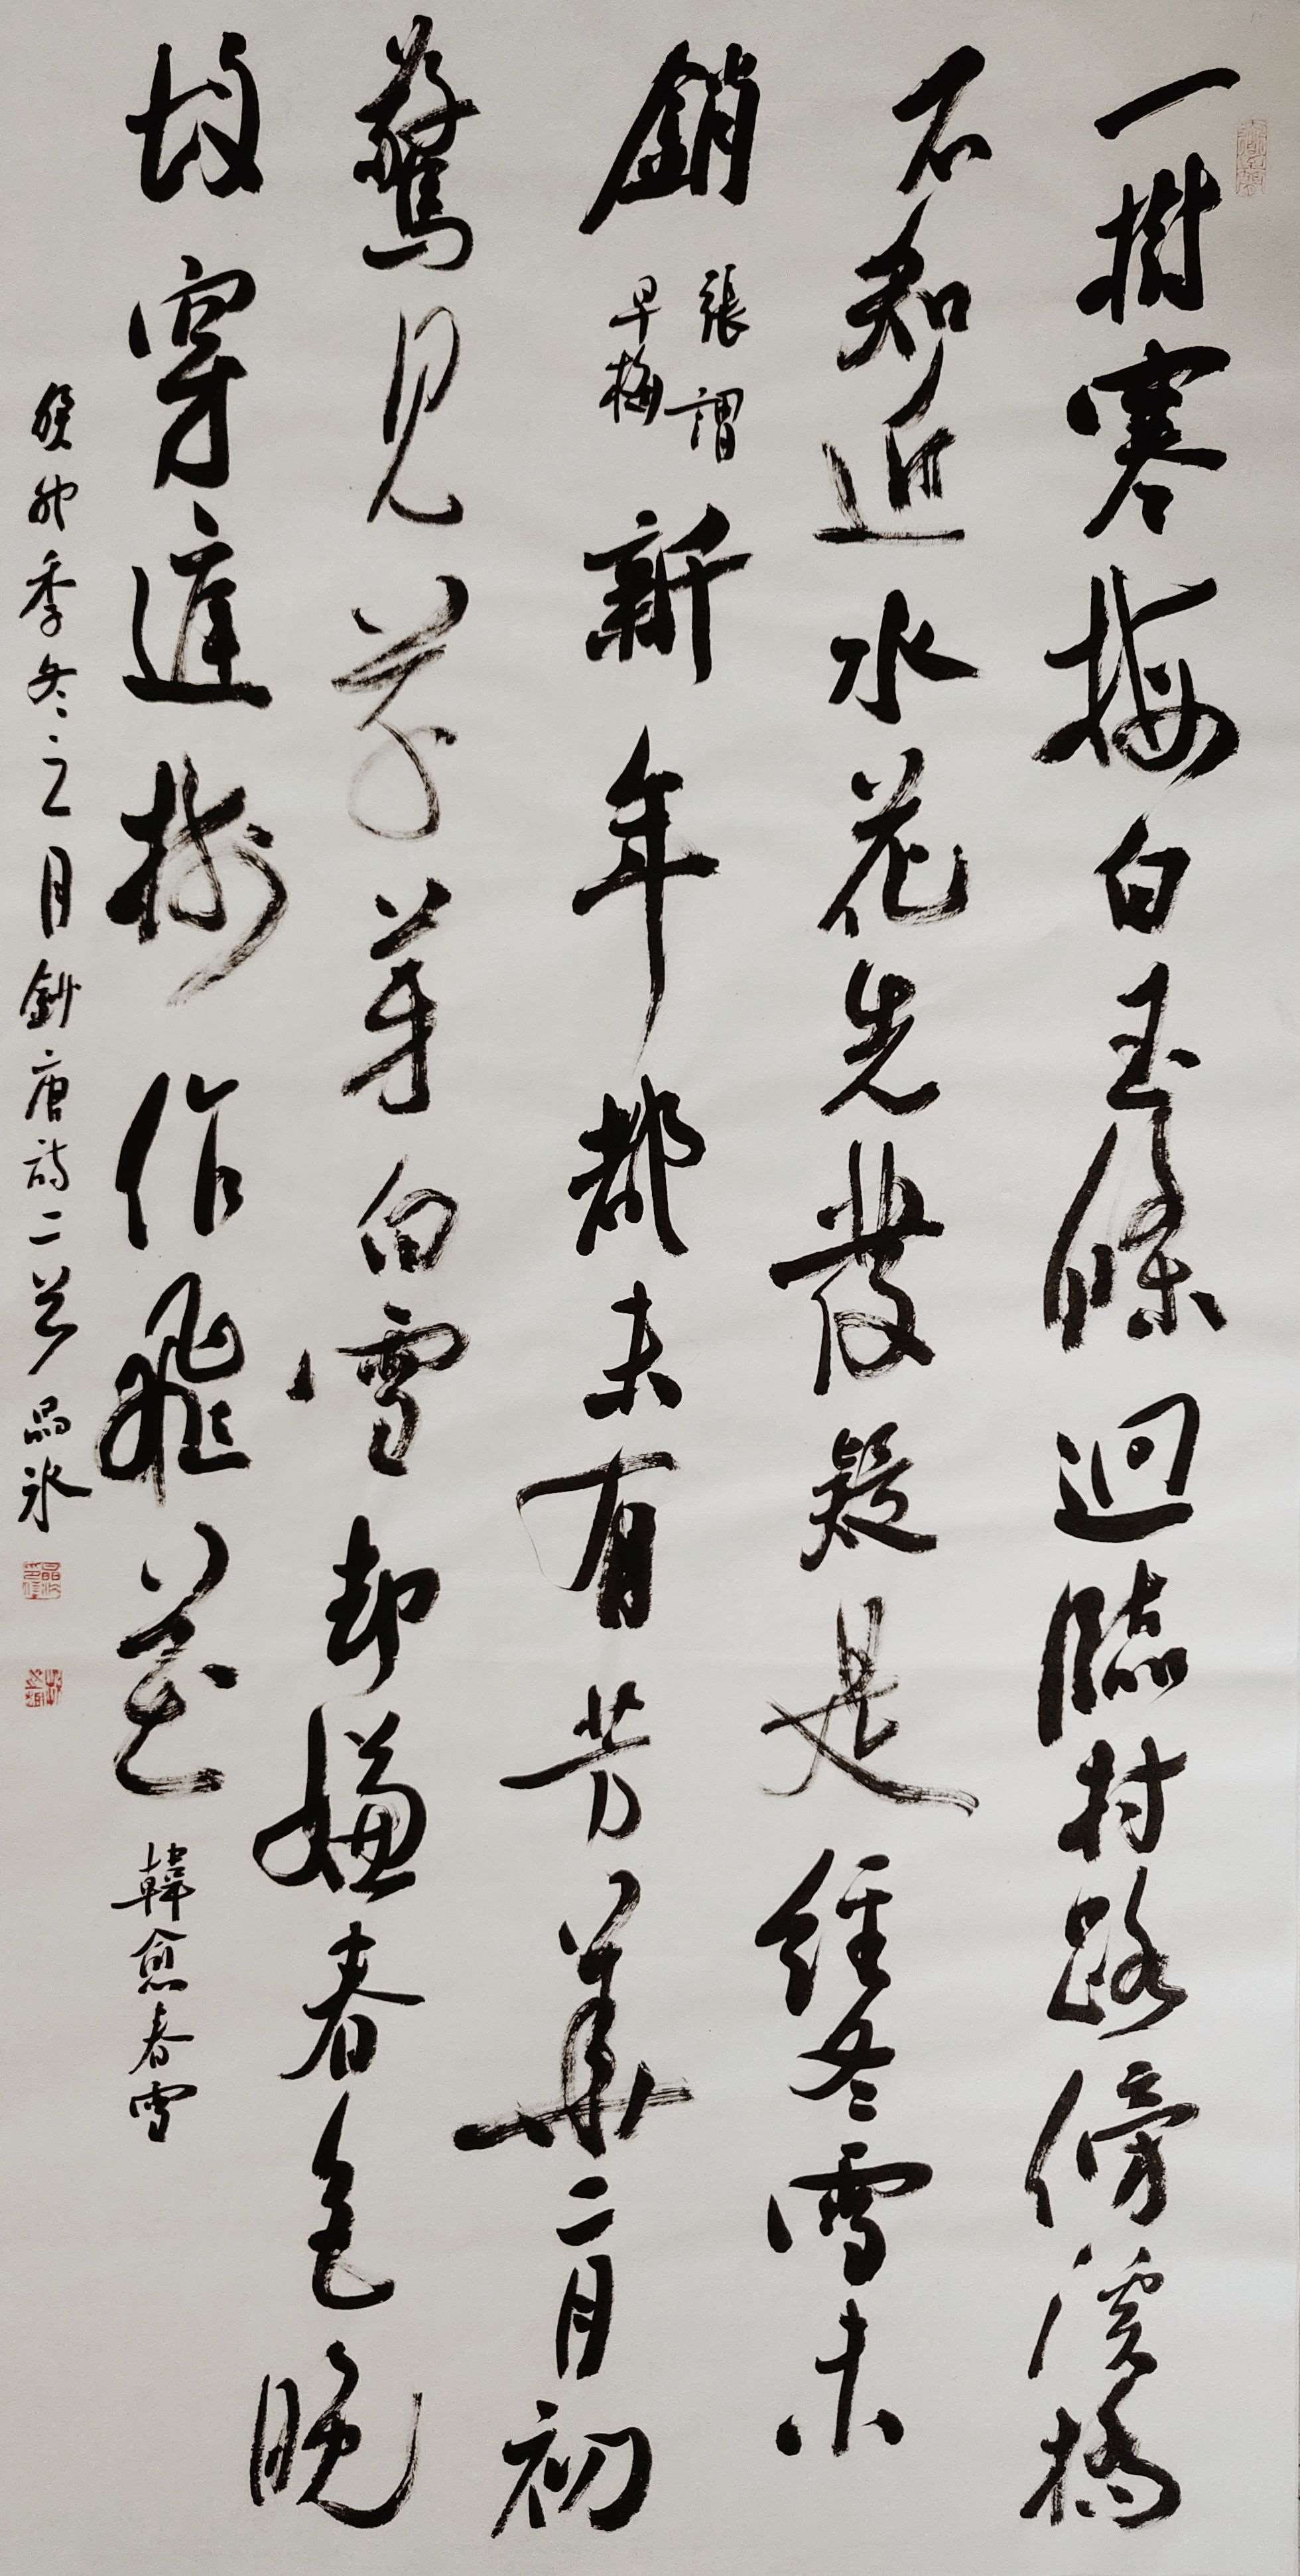 一樹寒梅白玉條迥臨村路傍溪橋
不知近水花先發疑是經冬雪未
銷
張謂
早梅
新年都未有芳華二月初
驚見草芽白雪却嫌春色晚
故穿庭樹作飛花
韓愈春雪
癸卯季冬之月鈔唐詩二首晶冰